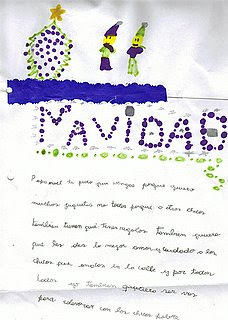 NAVIDAD
Papanoel te pido que vengas porque quiero
muchos juguetes no todos porque a otros chicos
tambien tienes que traer regalos tambien quiero
que les des lo mejor amor y cuidado a los
chicos que andan en la calle y por todos
lados y tambien quiero ser rey
para colaborar con los chicos pobres